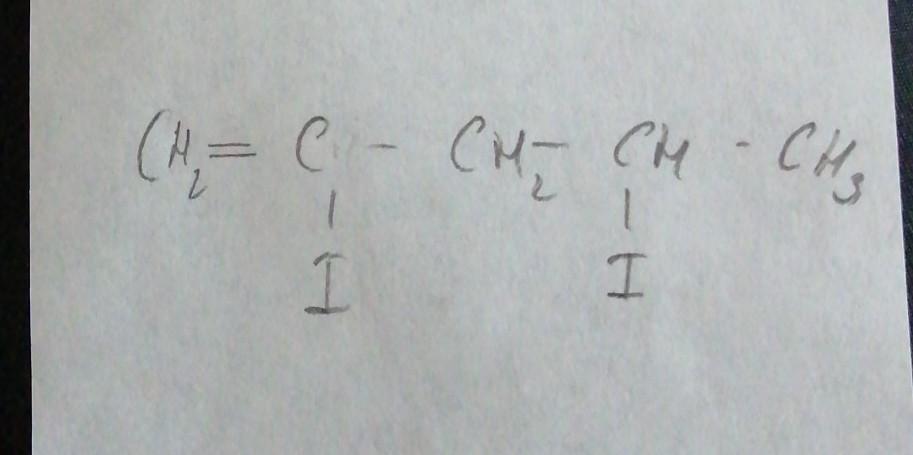 CH₂ = C - CH₂ - CH - CH₃
| |
I I